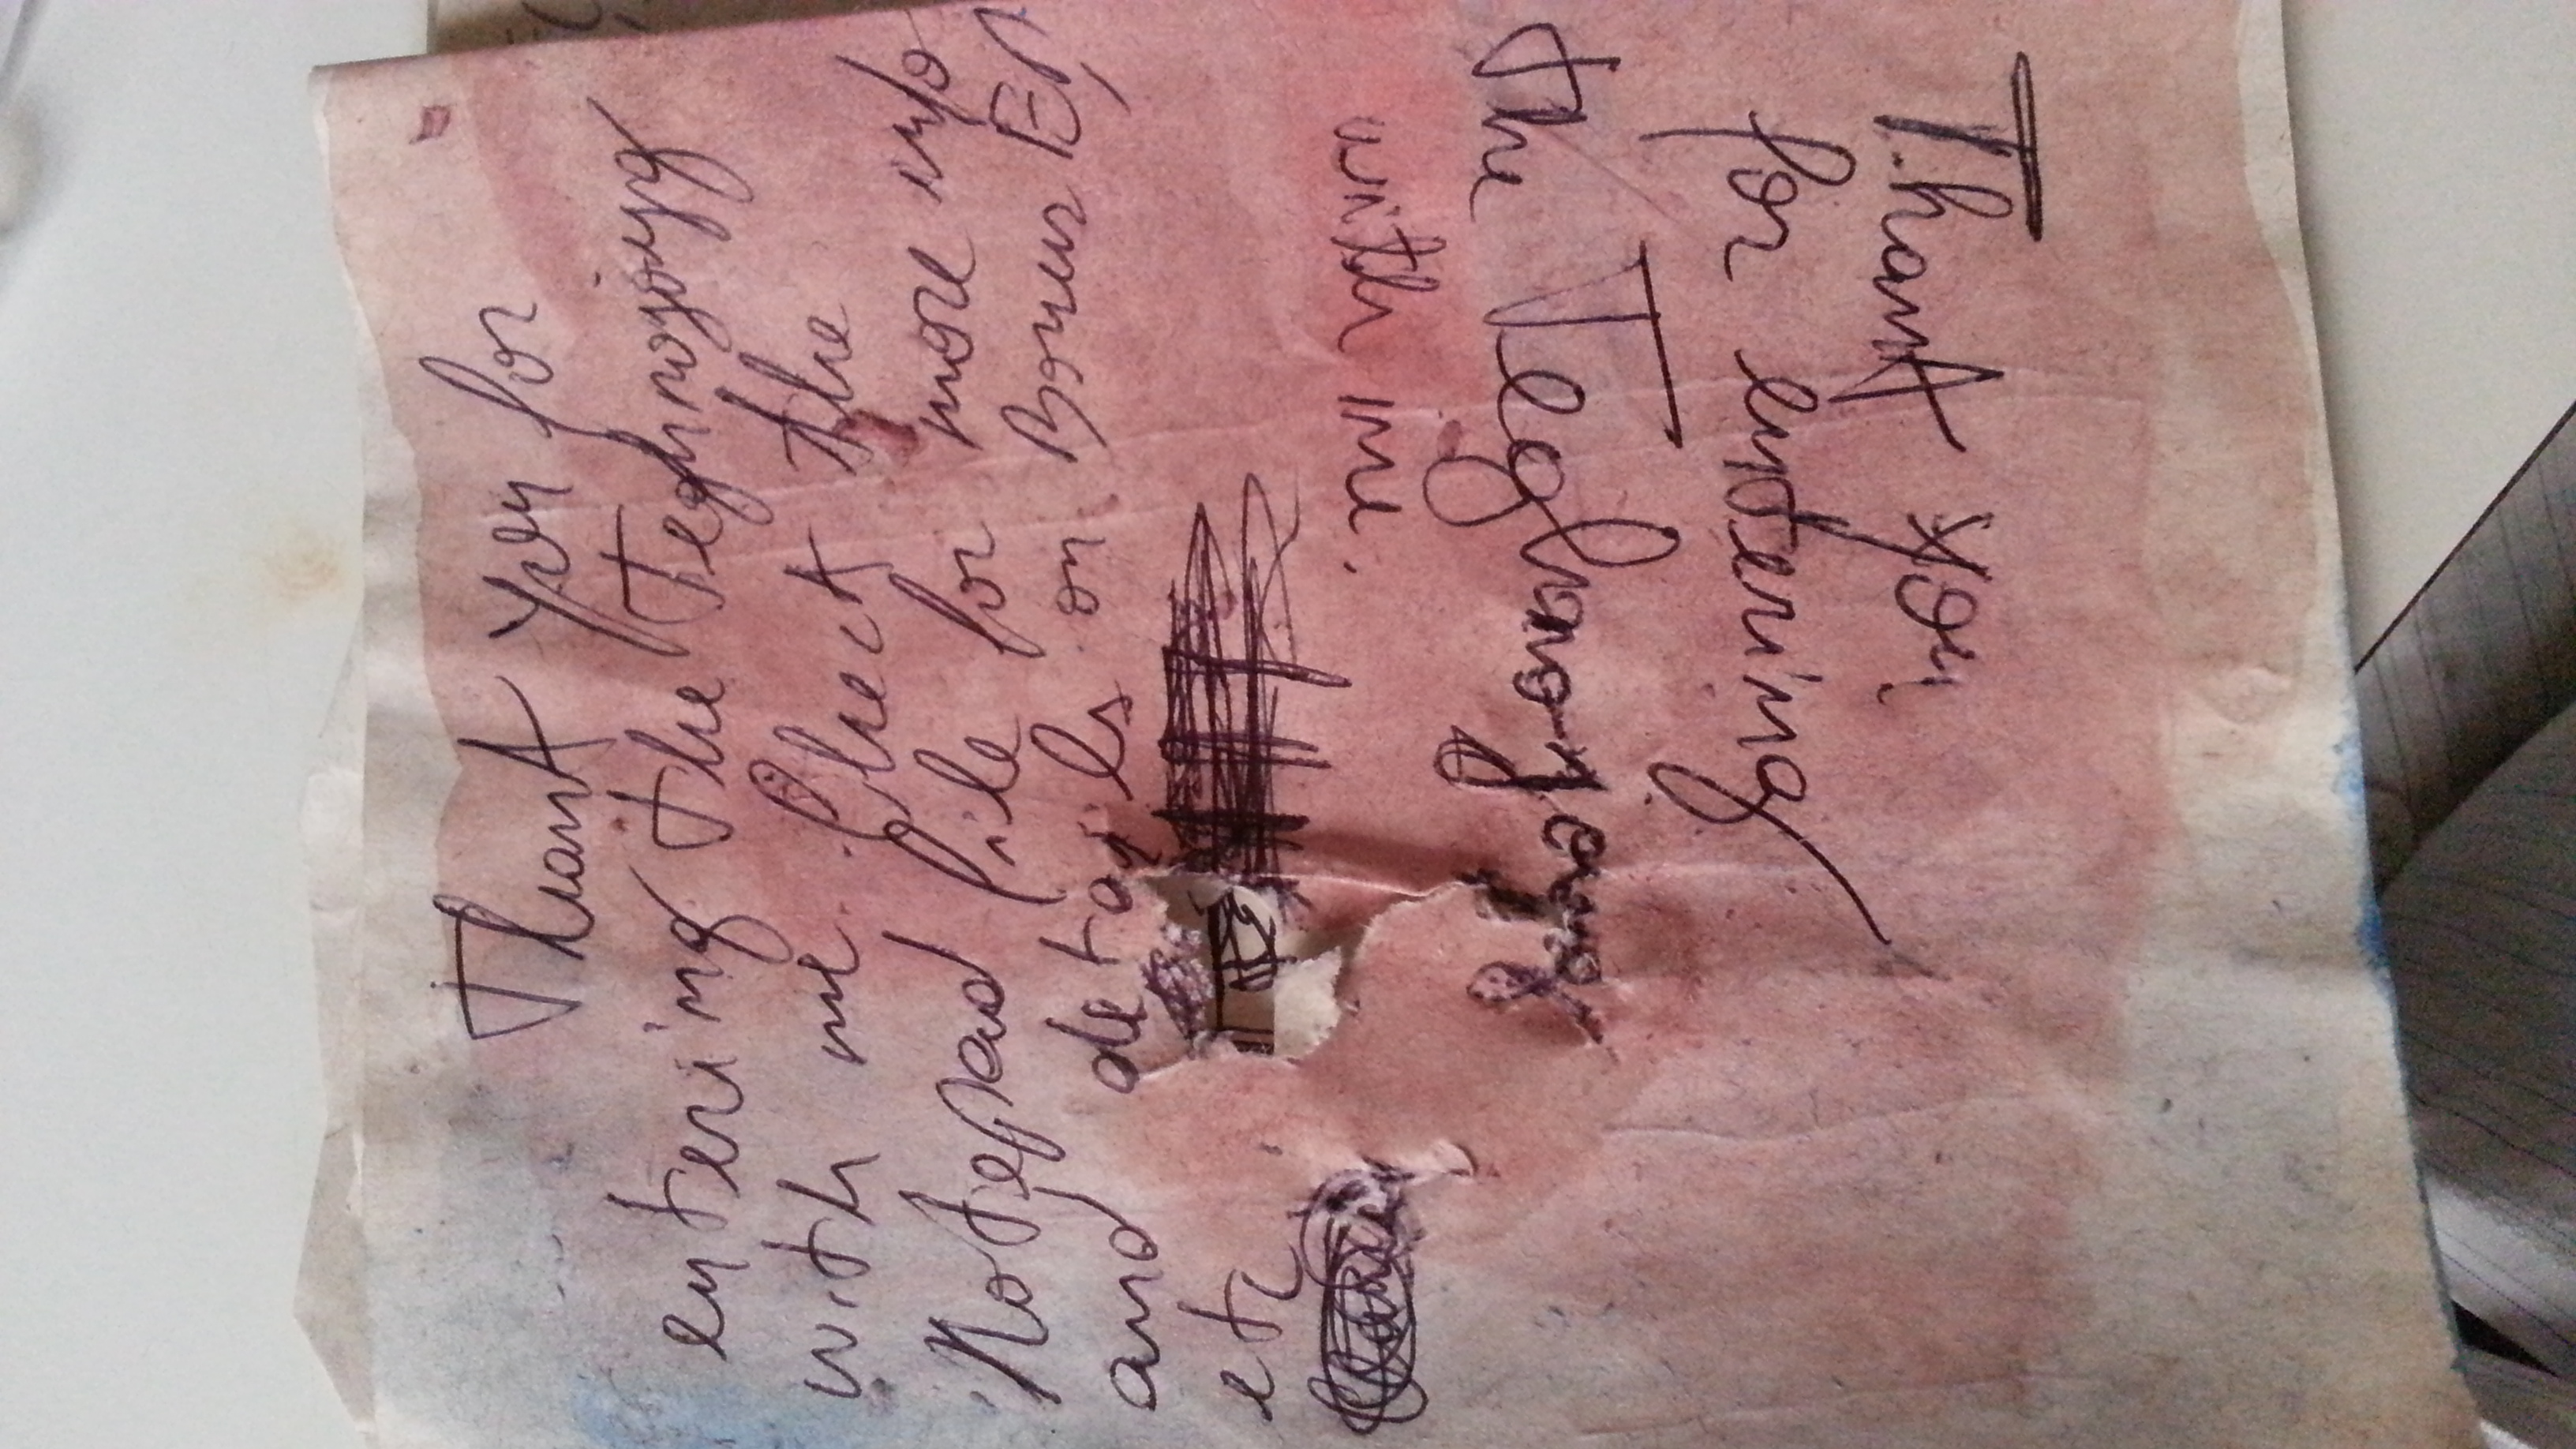 Thank you for
entering the
with me. Check the
Notepad file for more info
and details on Bonus EP,
etc
Thank you
for entering
the
with me.